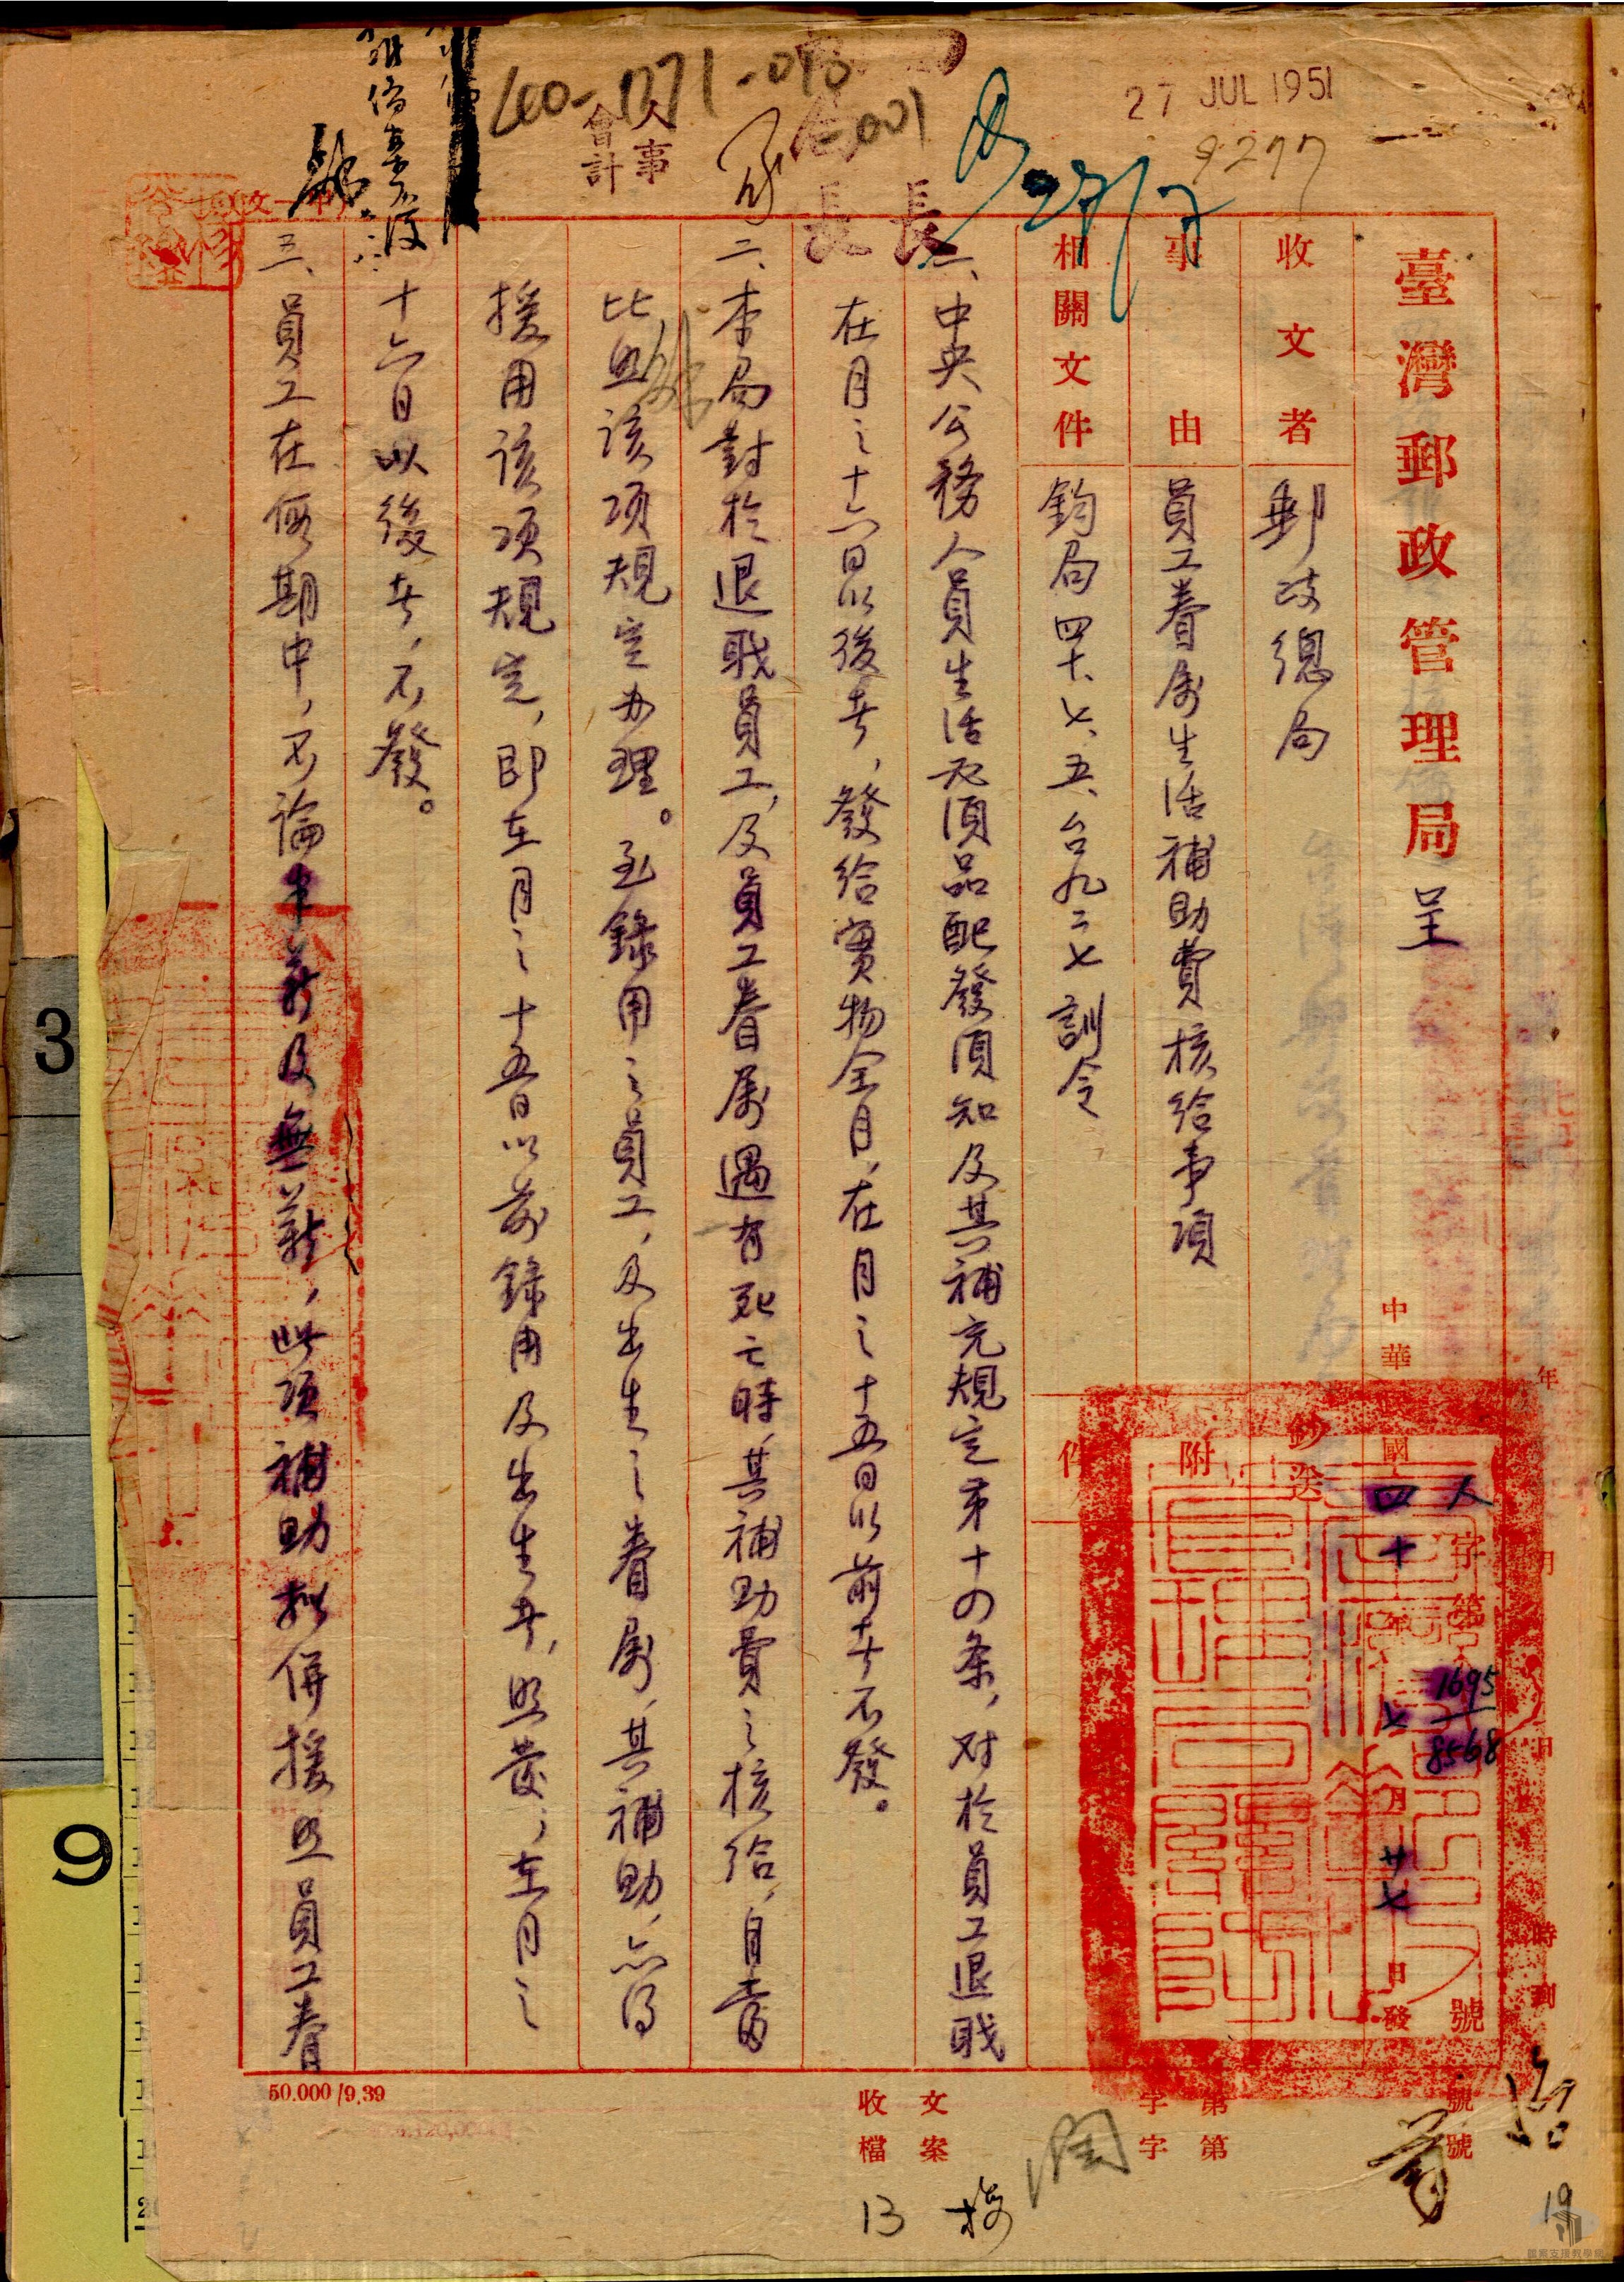 27 JUL 1951
9277
27/7
400-1771-040
001
人事
會計
長
長
臺灣郵政管理局 呈
中華民國四十年七月廿七日發
人字第1695/8568號
年 月 日 時到
收文者 郵政總局
事由 員工眷屬生活補助費核給事項
相關文件 鈞局四十、七、五、台九二七訓令
鈔送
附件
一、中央公務人員生活必須品配發須知及其補充規定第十四条，对於員工退職
在月之十六日以後者，發給實物全月，在月之十五日以前者不發。
二、本局對於退職員工，及員工眷屬遇有死亡時，其補助費之核給，自當
比照該項規定办理。至錄用之員工，及出生之眷屬，其補助，亦得
援用該項規定，即在月之十五日以前錄用及出生者，照發；在月之
十六日以後者，不發。
三、員工在假期中，不論半薪及無薪，此項補助擬併援照員工眷
50.000/9.39
收文 字第 號
檔案 字第 號
13
19
3
9
檔案支援教學網